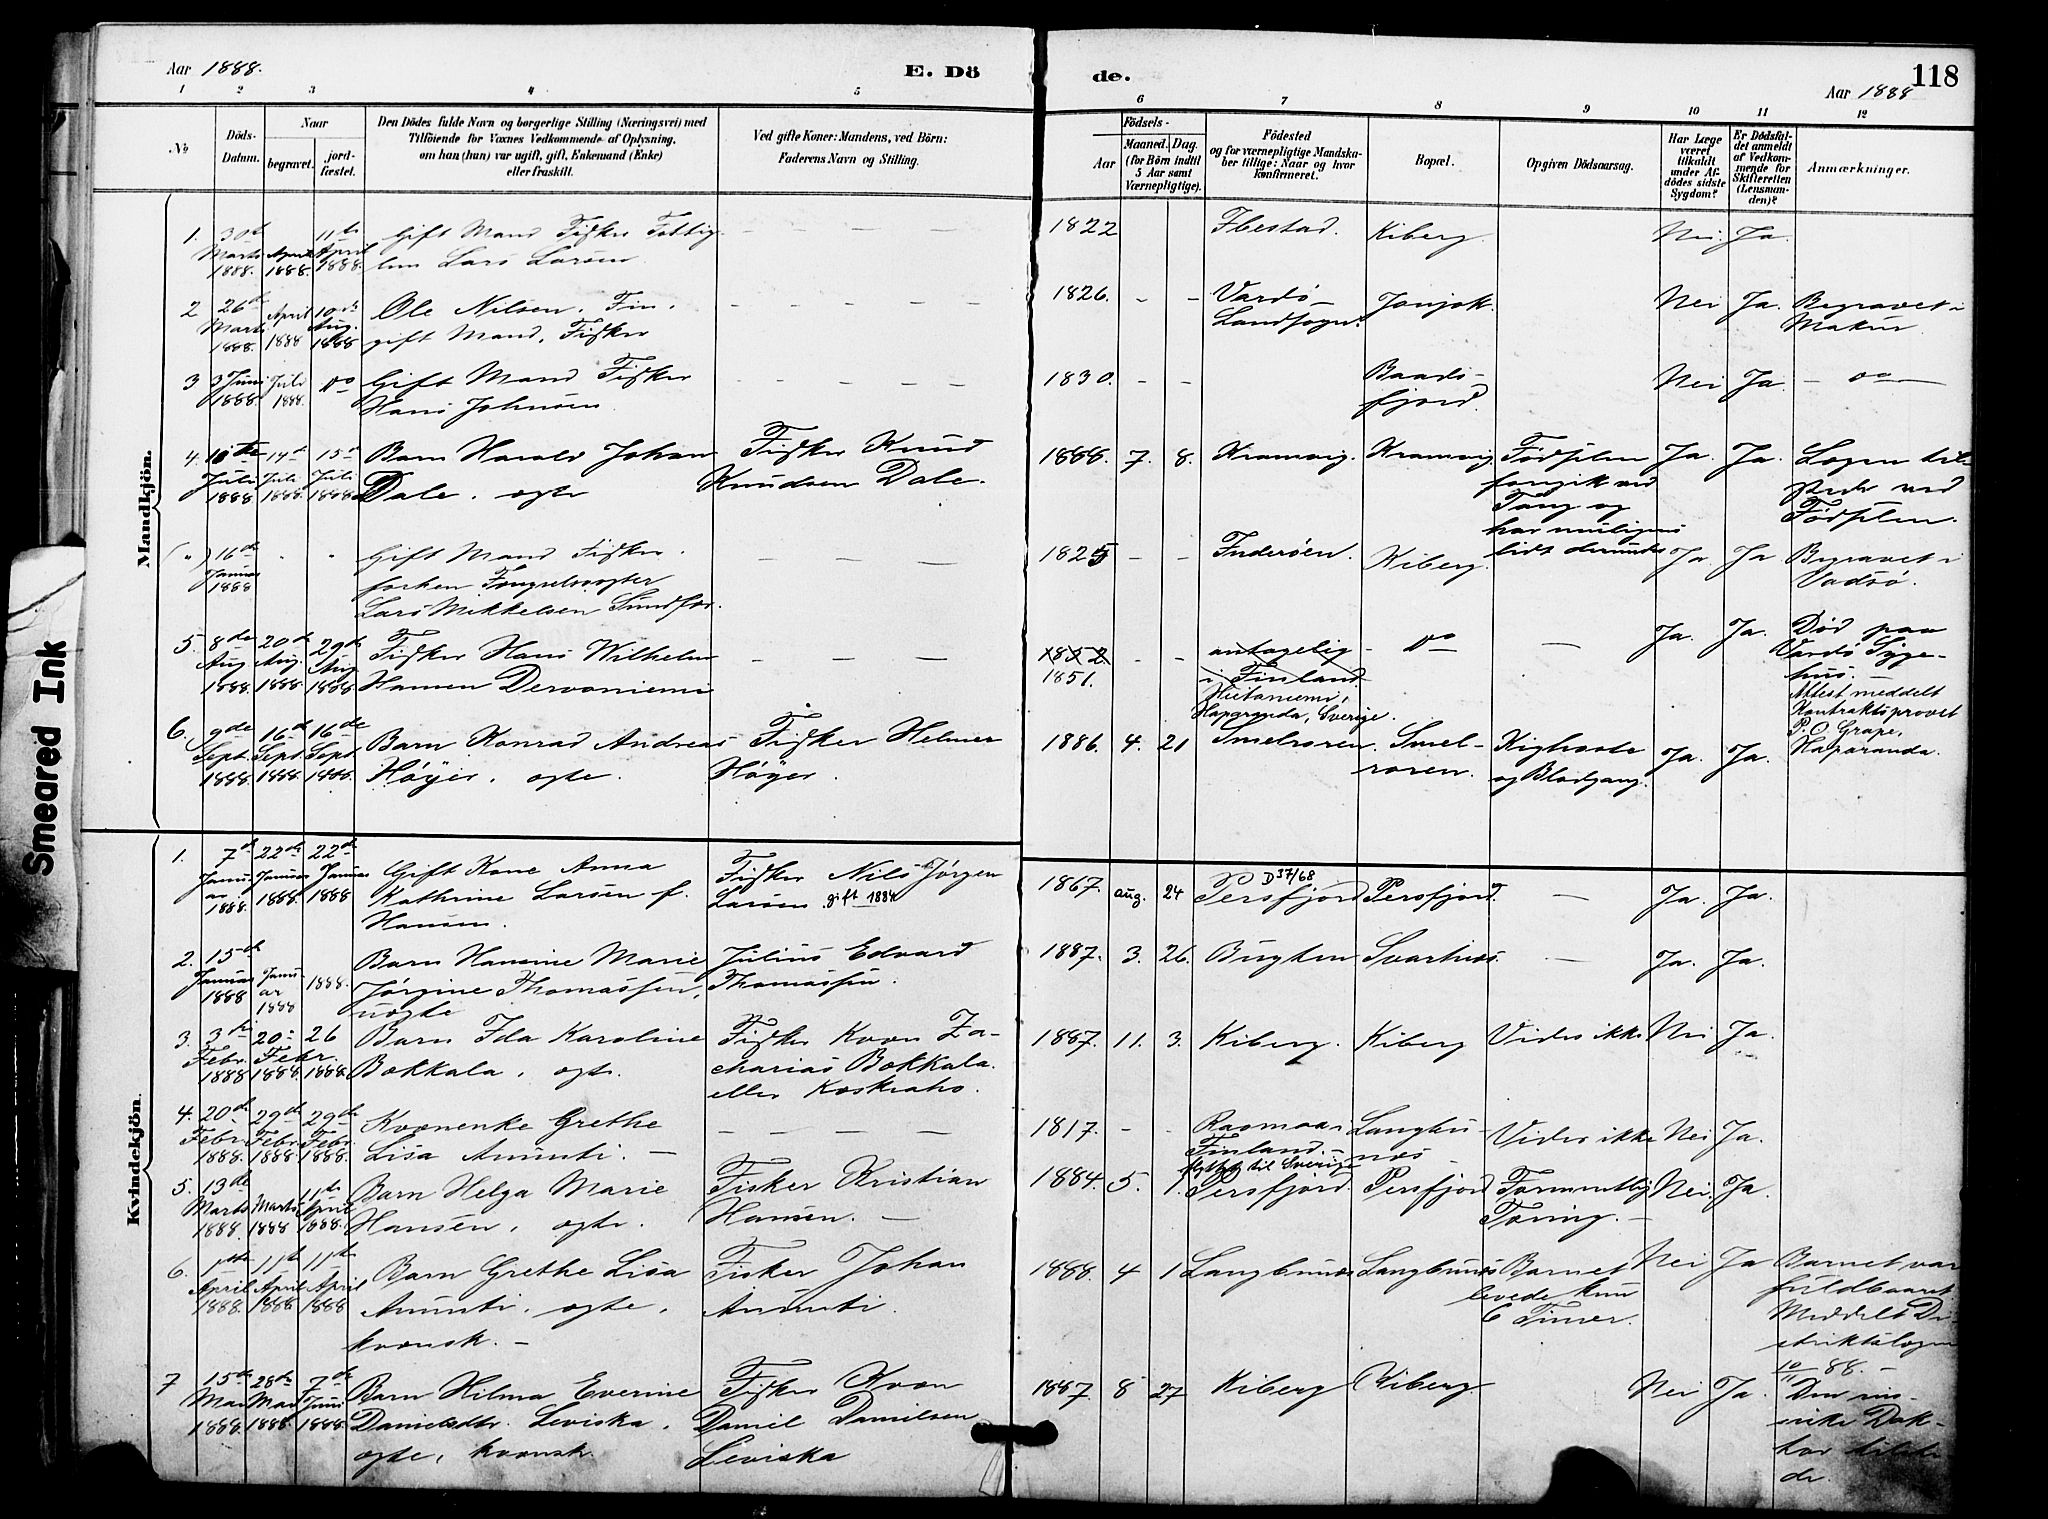 Aar 1888.
E. Dö
de.
118
Aar 1888
1 2 3 4 5 6 7 8 9 10 11 12
No
Döds-
Datum.
Naar
begravet.
jord-
fæstet.
Den Dödes fulde Navn og borgerlige Stilling (Næringsvei) med
Tilföiende for Voxnes Vedkommende af Oplysning,
om han (hun) var ugift, gift, Enkemand (Enke)
eller fraskilt.
Ved gifte Koner: Mandens, ved Börn:
Faderens Navn og Stilling.
Födsels-
Aar
Maaned. Dag.
(for Börn indtil
5 Aar samt
Værnepligtige).
Födested
og for værnepligtige Mandska-
ber tillige: Naar og hvor
konfirmeret.
Bopæl.
Opgiven Dödsaarsag.
Har Læge
været
tilkaldt
under Af-
dödes sidste
Sygdom?
Er Dödsfal-
det anmeldt
af Vedkom-
mende for
Skifteretten
(Lensman-
den)?
Anmærkninger.
Mandkjön.
1. 30te Marts 1888. April 1888. 11te April 1888.
Gift Mand Fisker Fattig-
lem Lars Larsen
— — — —
1822 Ibestad. Kiberg. Nei. Ja.
2 26de Marts 1888. April 1888 10de Aug. 1888
Ole Nilsen. Fin.
gift Mand, Fisker
— — — — —
1826. - - Vardö Landsogn. Nei Ja. Begravet i
Makur.
3 3 Juni 1888. Juli 1888. Do
Gift Mand Fisker
Hans Johnsen
— — — — —
1830. - - Baads-
fjord. Nei Ja. — Do —
4. 10de Juli 1888 14de Juli 1888. 15de Juli 1888.
Barn Harald Johan
Dale. ægte
Fisker Knud
Knudsen Dale.
1888. 7. 8. Kramvig. Kramvig. Födselen
foregik ved
Tang og
har muligens
lidt derunder
Ja. Ja. Lægen til-
stede ved
Födselen.
(") 16de Januar 1888 " "
Gift Mand Fisker
forhen Fængselsvogter
Lars Mikkelsen Sundfær.
— — — —
1825 - - Inderöen. Kiberg. Ja. Ja Begravet i
Vadsö.
5. 8de Aug 1888. 20de Aug. 1888 29de Aug 1888
Fisker Hans Wilhelm
Hansen Dervaniemi
— — — —
1852 1851. - - antagelig
i Finland.
Hietaniemi,
Haparanda, Sverige.
Do — Ja. Ja. Död paa
Vardö Syge-
hus. —
Attest meddelt
Kontraktsprovst
P. O. Grape,
Haparanda.
6. 9de Sept. 1888. 16de Sept 1888. 16de Sept. 1888.
Barn Konrad Andreas
Höyer. ægte.
Fisker Helmer
Höyer.
1886. 4. 21 Smelroren. Smel-
roren. Kighoste
og Blodgang. Ja. Ja.
Kvindekjön.
1. 7de Janu-
ar 1888. 22de Januar 1888. 22de Januar 1888
Gift Kone Anna
Kathrine Larsen f.
Hansen.
Fisker Nils Jörgen
Larsen. gift 1884
1867. aug. 24 D 37/68 Persfjord Persfjord. — Ja. Ja.
2. 15de Januar 1888 Janu-
ar 1888 1888.
Barn Hansine Marie
Jörgine Thomassen,
uægte
Julius Edvard
Thomassen.
1887. 3. 26. Bugten Svartnæs. — Ja. Ja.
3. 3die Febr. 1888 20de Febr. 1888. 26 1888.
Barn Ida Karoline
Bokkala, ægte.
Fisker Kvæn Za-
charias Bokkala
eller Koskiaho.
1887. 11. 3. Kiberg. Kiberg Vides ikke Nei Ja.
4. 20de Febr. 1888. 29de Febr. 1888. 29de Febr. 1888.
Kvænenke Grethe
Lisa Anunti. —
— — — —
1817. - - Finland. —
flyttet til Sverige
Langbu-
næs — Vides ikke Nei Ja.
5. 13de Marts 1888. Marts 1888 11te April 1888.
Barn Helga Marie
Hansen, ægte.
Fisker Kristian
Hansen. —
1884. 5. 1. Persfjord. Persfjord Formentlig
Tæring. — Nei. Ja.
6. 1ste April 1888. 11te April 1888 11te April 1888
Barn Grethe Lisa
Anunti. ægte,
kvænsk. —
Fisker Johan
Anunti.
1888. 4 1 Langbunæs Langbunæs Barnet
levede kun
6 Timer. Nei Ja Barnet var
fuldbaaret
Meddelt Di-
striktslægen
10/11 88. —
7 15de Mai 1888. 28de Mai 1888. 7de Juni 1888.
Barn Hilma Everine
Danielsdtr. Leviska,
ægte, kvænsk.
Fisker Kvæn
Daniel Danielsen
Leviska
1887. 8 27 Kiberg Kiberg. Nei Ja. Den rus-
siske Dok-
tor tilste-
de.
Smeared Ink